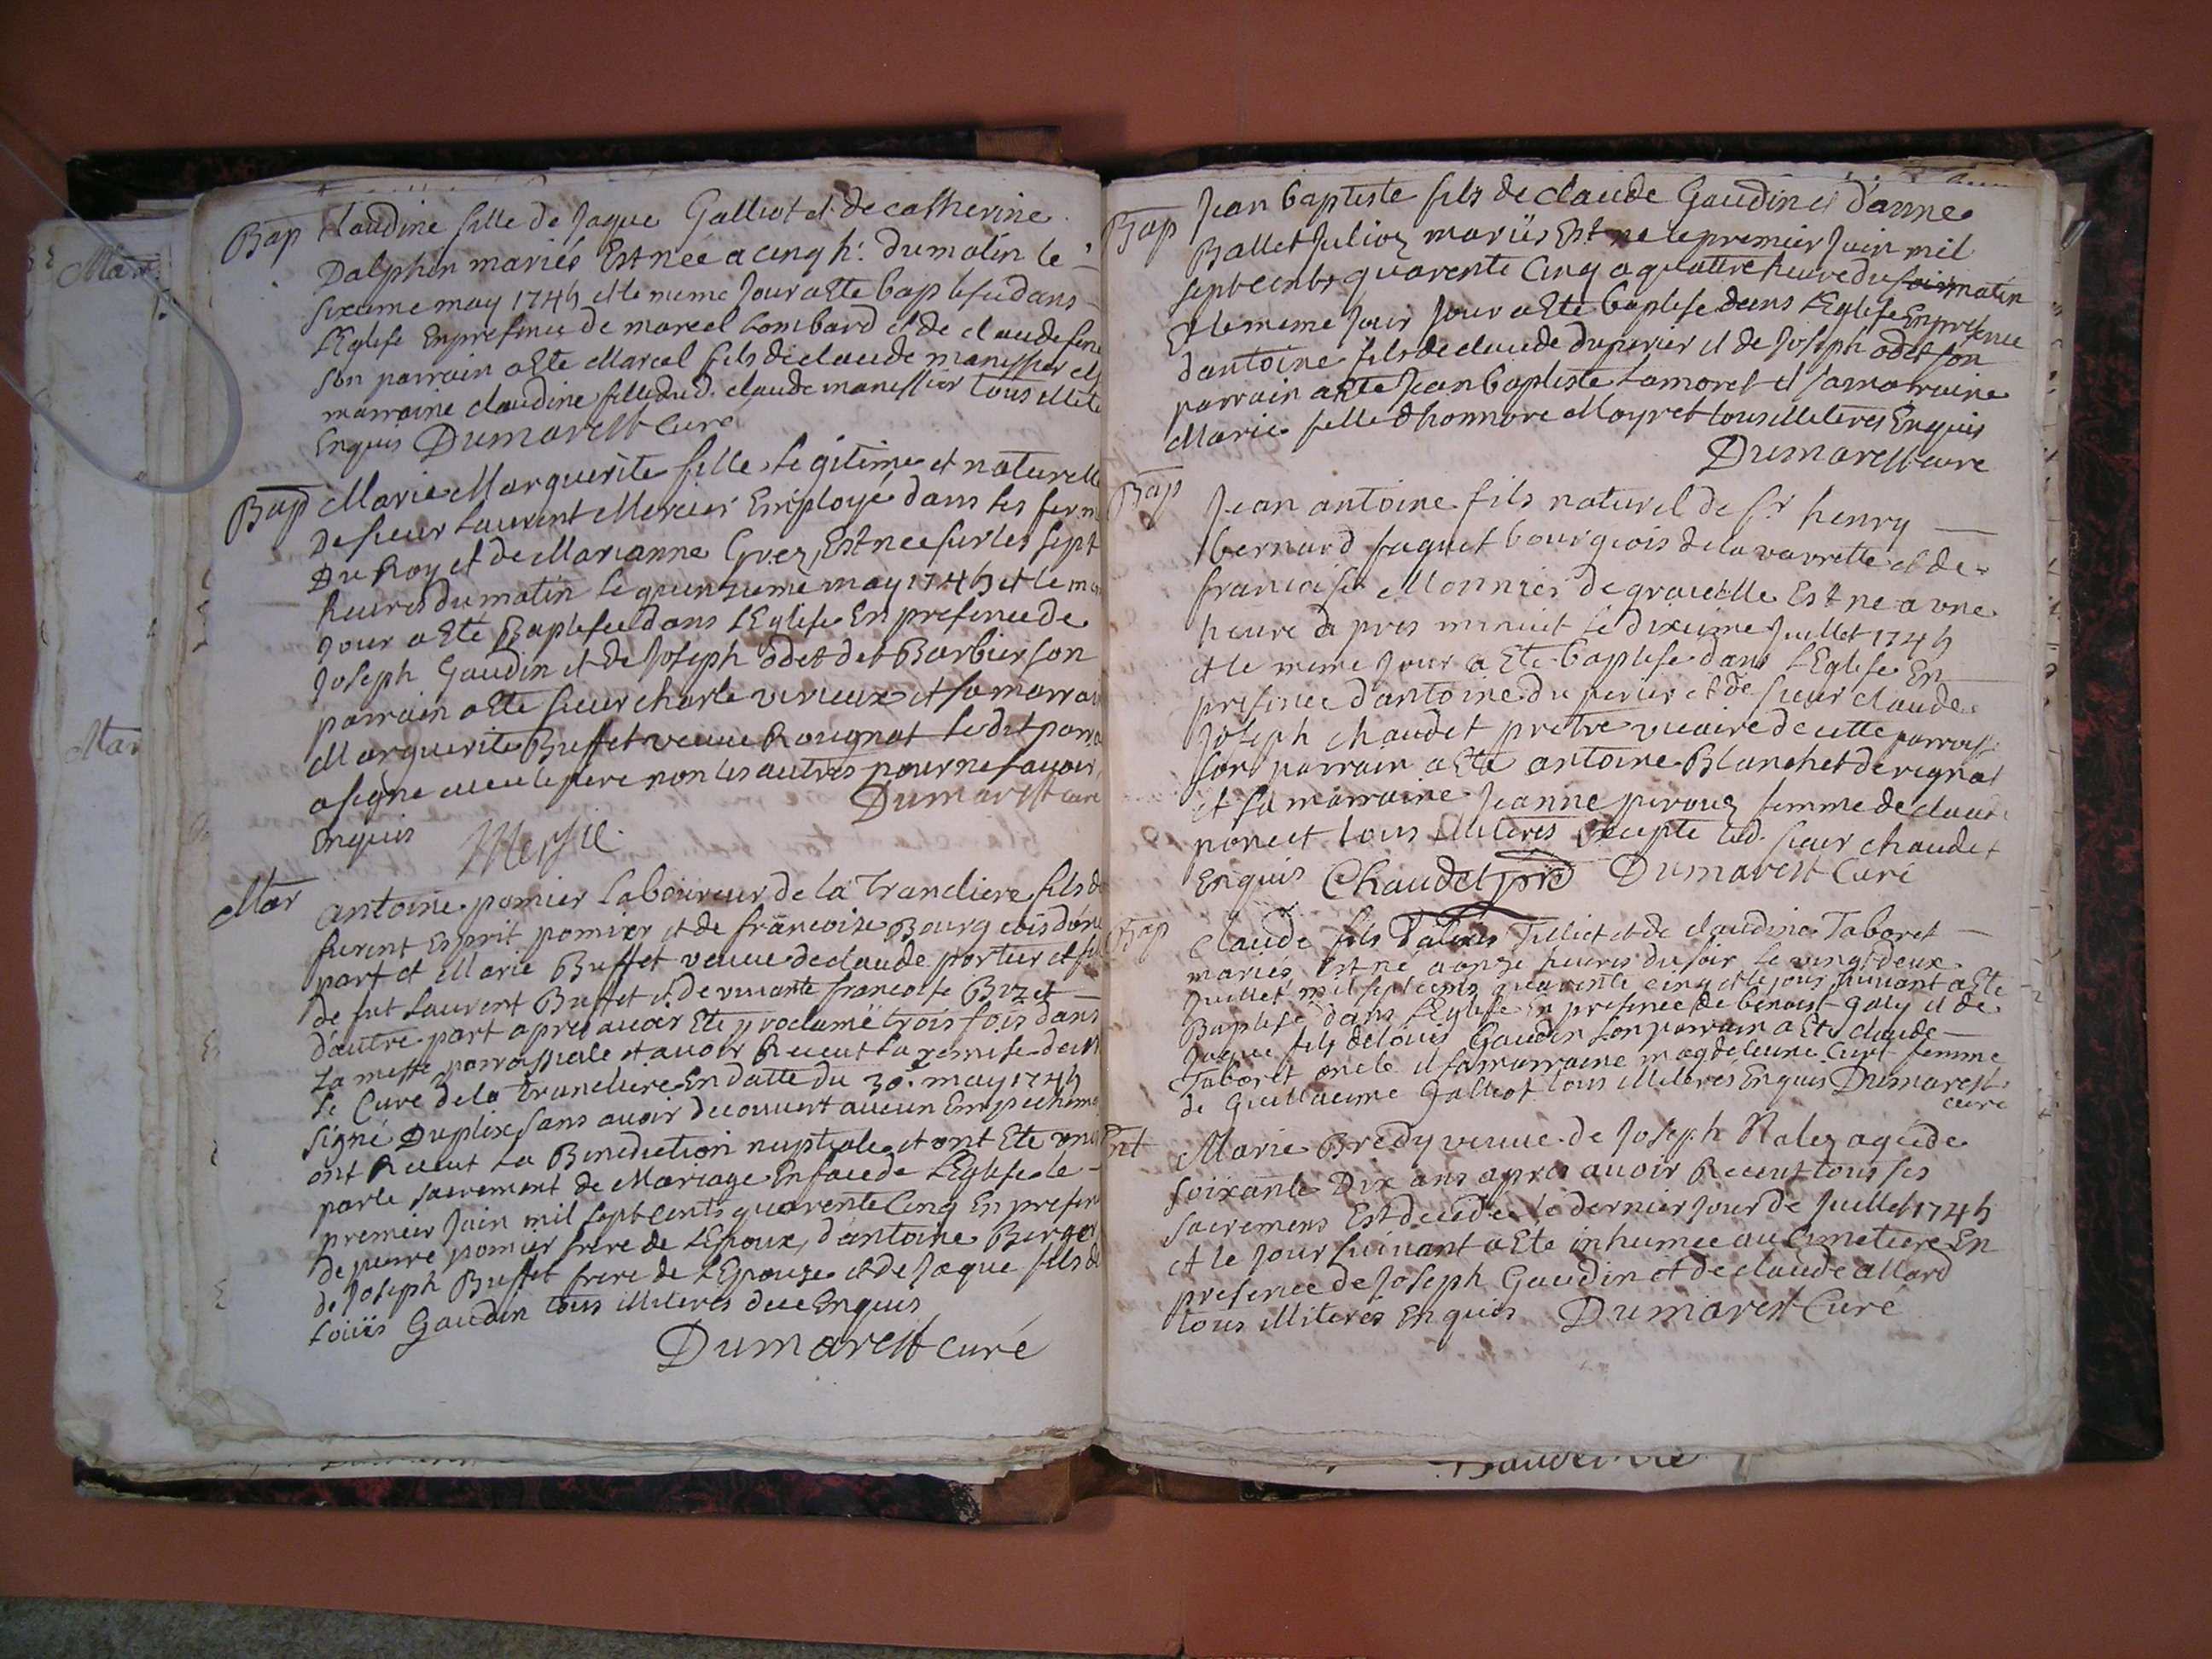 Mar
Mar
Bap Claudine fille de Jaque Galliot et de catherine
Dalphin mariés Est née a cinq h: du matin le
sixieme may 1745 et le meme Jour a Ete baptisée dans
L'Eglise En presence de marcel Lombard et de claude
son parrain a Ete Marcel fils de claude manissier et
marraine claudine fille dud. claude manissier tous illite
Enquis Dumarest curé
Bap Marie Marguerite fille Legitime et naturelle
De sieur Laurent Mercier Employé dans les ferm
Du Roy et de Marianne Grez, Est nee sur les sept
heures du matin le quinzieme may 1745 et le me
Jour a Eté Baptisée dans L'Eglise En presence de
Joseph Gaudin et de Joseph odet det Barbier son
parrain a Ete sieur charle verieux et sa marrai
Marguerite Buffet veuve Rougnat ledit parra
a signe avec le pere non les autres pour ne savoir
Enquis Dumarest curé
Mar Antoine pomier Laboureur de la Trancliere fils de
furent Esprit pomier et de francoise Bourgeois d'une
part et Marie Buffet veuve de claude portier et fil
de fut Laurent Buffet et de vivante francoise Buzet
d'autre part apres avoir Ete proclamé trois fois dans
La messe parroissiale et avoir Receut la remise de M
le Curé de la Trancliere En datte du 30. may 1745
signé Duplix sans avoir decouvert aucun Empecheme
ont Receut La Benediction nuptiale et ont Ete unis
par le sacrement de Mariage En face de L'Eglise le
premier Juin mil sept cents quarente Cinq En presen
de pierre pomier frere de L'Epoux, d'antoine Berger
de Joseph Buffet frere de L'Epouze et de Jaque fils de
Loüis Gaudin tous illiteres de ce Enquis
Dumarest curé
Bap Jean baptiste fils de claude Gaudin et d'anne
Ballet Julioz mariés Est né le premier Juin mil
sept cents quarente Cinq a quattre heure du soir matin
Et le meme Jour Jour a Ete baptisé dans L'Eglise En presence
d'antoine fils de claude duperier et de Joseph odet son
parrain a Ete Jean baptiste Lamoret et sa marraine
Marie fille d'honnore Moyret tous illiteres Enquis
Dumarest curé
Bap Jean antoine fils naturel de Sr henry
bernard faguet bourgeois de la vavrette et de
francoise Monnier de gravelle Est né a une
heure d'apres minuit le dixieme Juillet 1745
et le meme Jour a Ete baptisé dans L'Eglise En
presence d'antoine du perier et de sieur claude
Joseph chaudet pretre vicaire de cette parroisse
son parrain a Eté antoine Blanchet de rignat
et sa marraine Jeanne perouz femme de claude
poncet tous illiteres Excepté led. sieur chaudet
Enquis Chaudet ptre Dumarest Curé
Bap Claude fils d'alexis Tilliet et de claudine Taboret
mariés, est né a onze heures du soir le vingt deux
Juillet mil sept cents quarente cinq et le jour suivant a Ete
Baptisé dans L'Eglise En presence de benoist galy et de
Jaque fils de loüis Gaudin son parrain a Ete claude
Taboret oncle et sa marraine magdeleine Curt femme
de Guillaume Galliot tous illiteres Enquis Dumarest
curé
Ent Marie Bredy veuve de Joseph Ralez agée de
soixante Dix ans apres avoir Receut tous ses
sacremens Est decedée le dernier Jour de Juillet 1745
et le Jour suivant a Ete inhumee au Cimetiere En
presence de Joseph Gaudin et de claude allard
tous illiteres Enquis Dumarest Curé